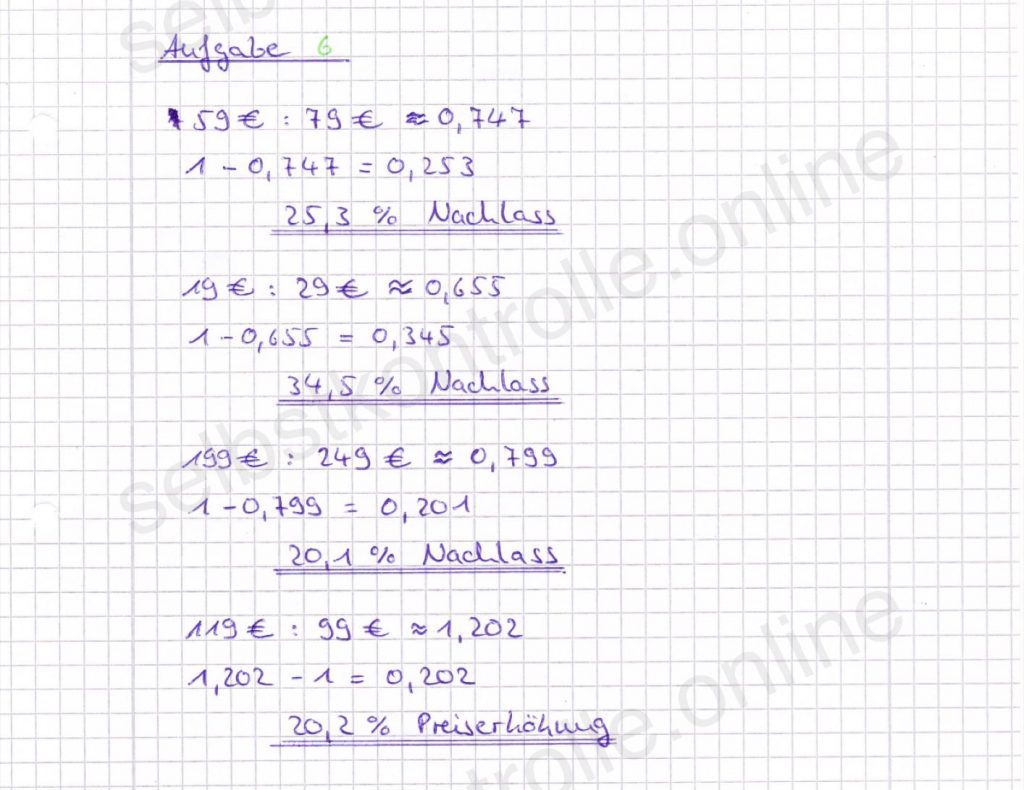 Aufgabe 6
59 € : 79 € ≈ 0,747
1 - 0,747 = 0,253
25,3 % Nachlass
19 € : 29 € ≈ 0,655
1 - 0,655 = 0,345
34,5 % Nachlass
199 € : 249 € ≈ 0,799
1 - 0,799 = 0,201
20,1 % Nachlass
119 € : 99 € ≈ 1,202
1,202 - 1 = 0,202
20,2 % Preiserhöhung
selbstkontrolle.online